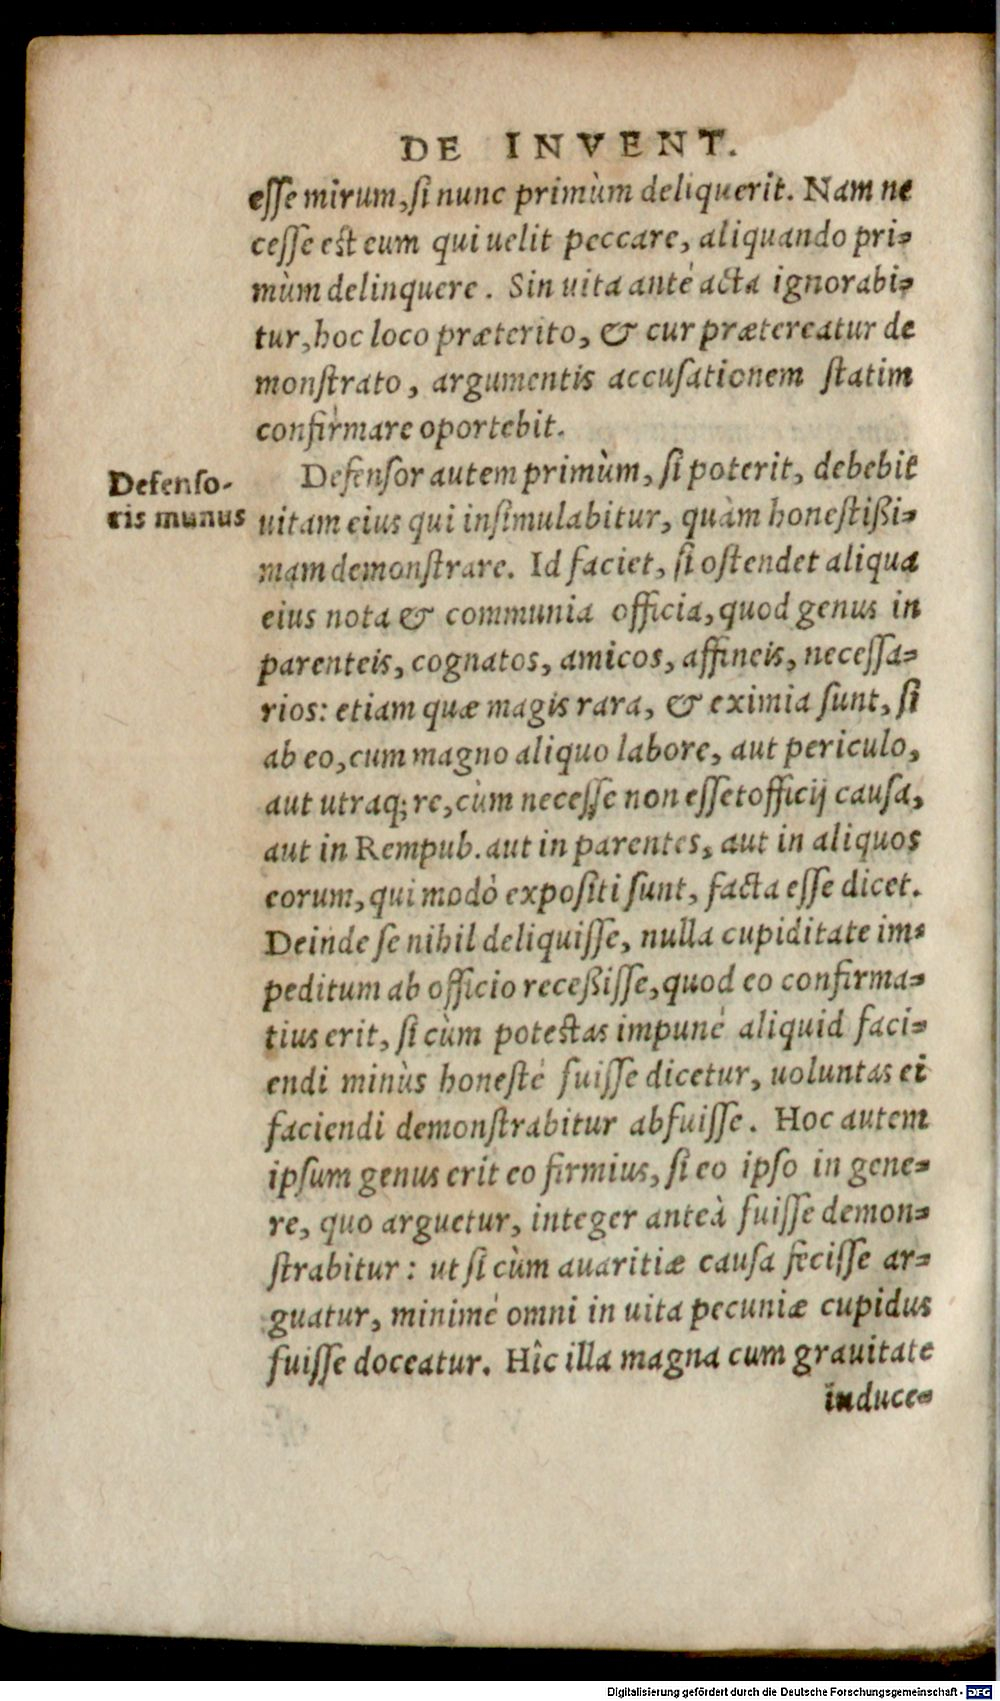 DE INVENT.
esse mirum, si nunc primùm deliquerit. Nam ne
cesse est eum qui uelit peccare, aliquando pri-
mùm delinquere. Sin uita antè acta ignorabi-
tur, hoc loco præterito, & cur prætereatur de
monstrato, argumentis accusationem statim
confirmare oportebit.
Defenso-
ris munus
Defensor autem primùm, si poterit, debebit
uitam eius qui insimulabitur, quàm honestißi-
mam demonstrare. Id faciet, si ostendet aliqua
eius nota & communia officia, quod genus in
parenteis, cognatos, amicos, affineis, necessa-
rios: etiam quæ magis rara, & eximia sunt, si
ab eo, cum magno aliquo labore, aut periculo,
aut utraq; re, cùm necesse non esset officij causa,
aut in Rempub. aut in parentes, aut in aliquos
eorum, qui modò expositi sunt, facta esse dicet.
Deinde se nihil deliquisse, nulla cupiditate im-
peditum ab officio receßisse, quod eo confirma-
tius erit, si cùm potestas impunè aliquid faci-
endi minùs honestè fuisse dicetur, uoluntas ei
faciendi demonstrabitur abfuisse. Hoc autem
ipsum genus erit eo firmius, si eo ipso in gene-
re, quo arguetur, integer anteà fuisse demon-
strabitur: ut si cùm auaritiæ causa fecisse ar-
guatur, minimè omni in uita pecuniæ cupidus
fuisse doceatur. Hîc illa magna cum grauitate
induce-
Digitalisierung gefördert durch die Deutsche Forschungsgemeinschaft - DFG